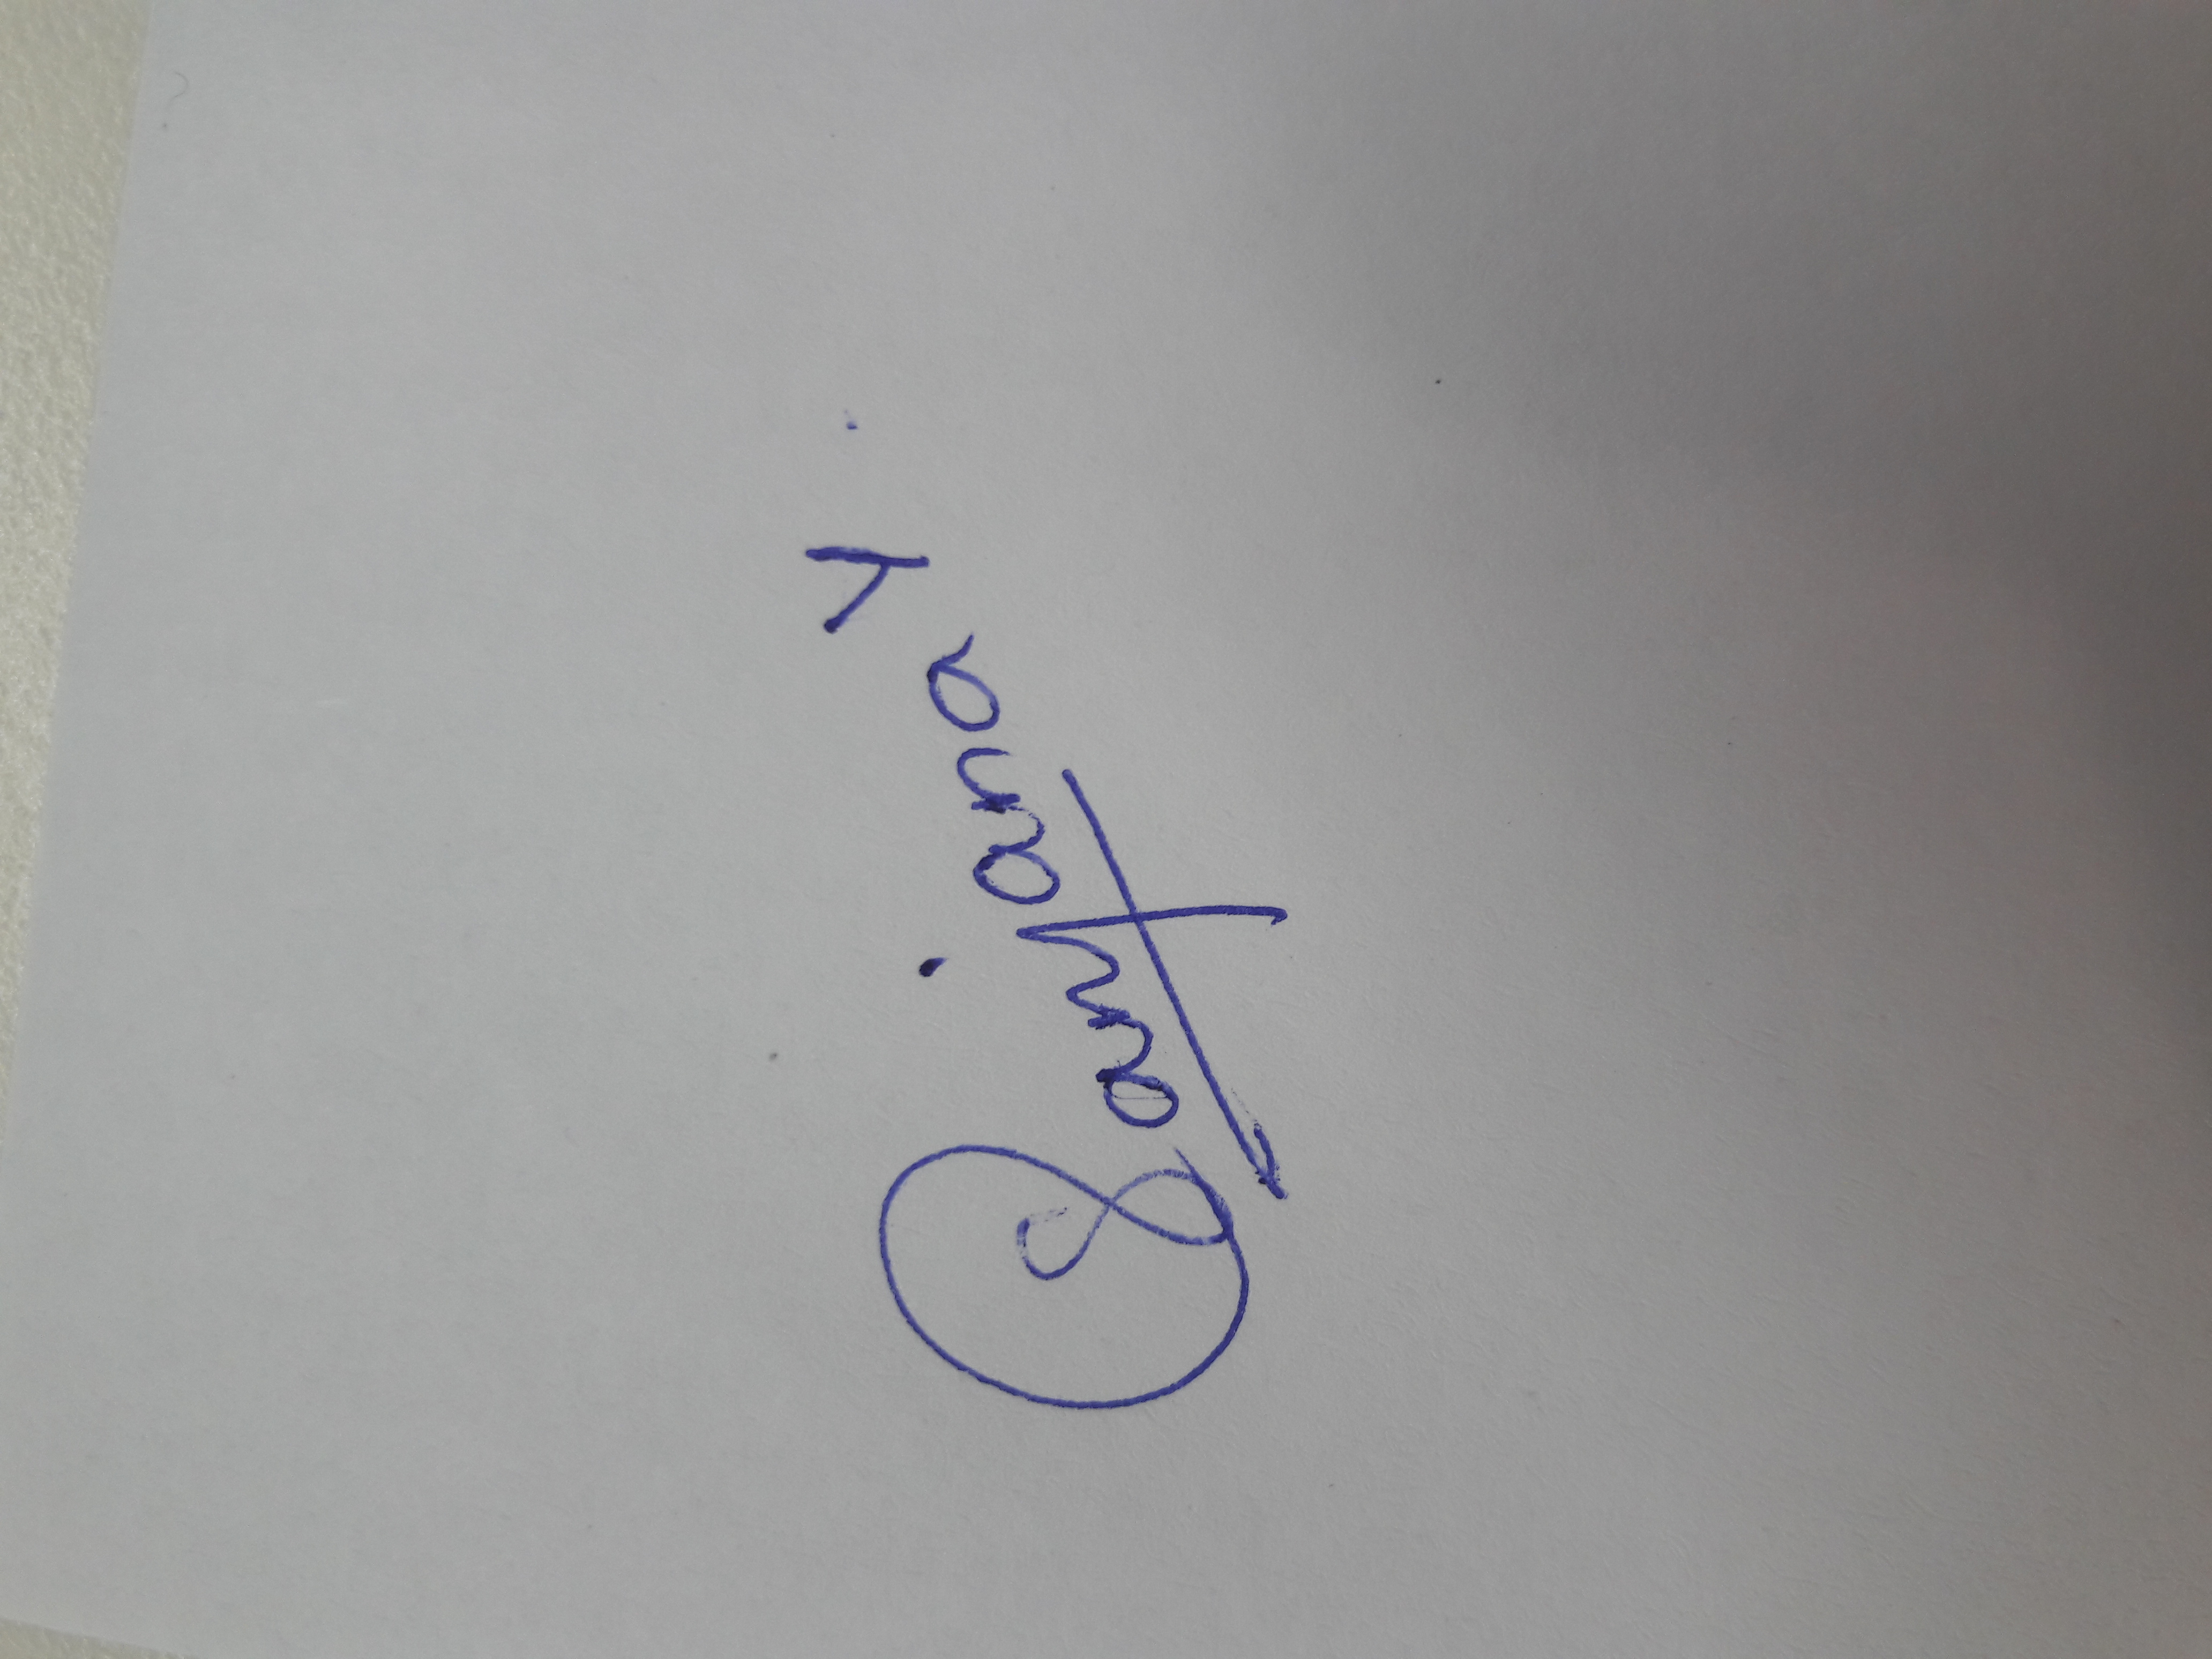 Sanjana Y.